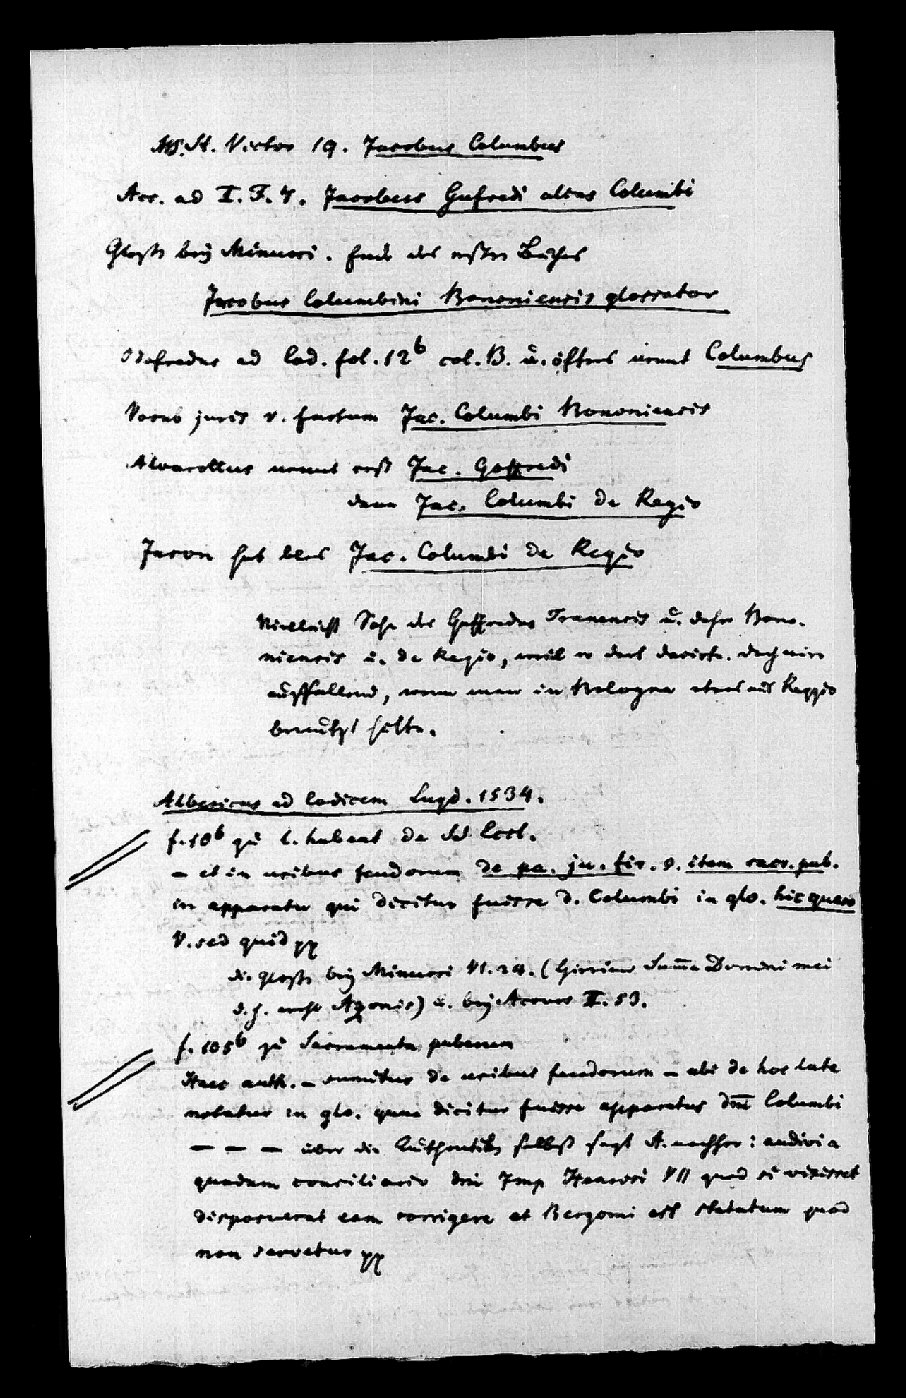 MS. St. Victor 19. Jacobus Columbus
Acc. ad II. F. 4. Jacobus Gufredi alias Columbi
Glosse bey Minucci. Ende des ersten Buches
Jacobus Columbini Bononiensis glossator
Odofredus ad Cod. fol. 12b col. B. u. öfters nennt Columbus
Vocab juris v. factum Jac. Columbi Bononiensis
Alvarottus nennt erst Jac. Goffredi
dann Jac. Columbi de Regio
Jason hat blos Jac. Columbi de Regio
Vielleicht Sohn des Goffredus Tranensis u. daher Bono-
niensis u. de Regio, weil er dort docirte. doch wäre
auffallend, wenn man in Bologna etwas aus Reggio
benutzt hätte.
Albericus ad Codicem Lugd. 1534.
f. 10b zu l. habeat de SS Eccl.
– et in usibus feudorum de pa. ju. fir. §. item sacr. pub.
in apparatu qui dicitur fuisse d. Columbi in glo. hic quero
V. sed quid pp
die Glosse bey Minucci VI. 24. (Girrimus Summa Domini mei
d. h. nicht Azonis) u. bey Accurs II. 53.
f. 105b zu Sacramenta puberum
Haec auth. – sumitur de usibus feudorum – ubi de hoc late
notatur in glo. quae dicitur fuisse apparatus dni Columbi
– – – über die Authentik selbst sagt A. nachher: audivi a
quodam consiliario dni Imp Henrici VII quod si vixisset
disposuerat eam corrigere et Bergomi est statutum quod
non servetur pp